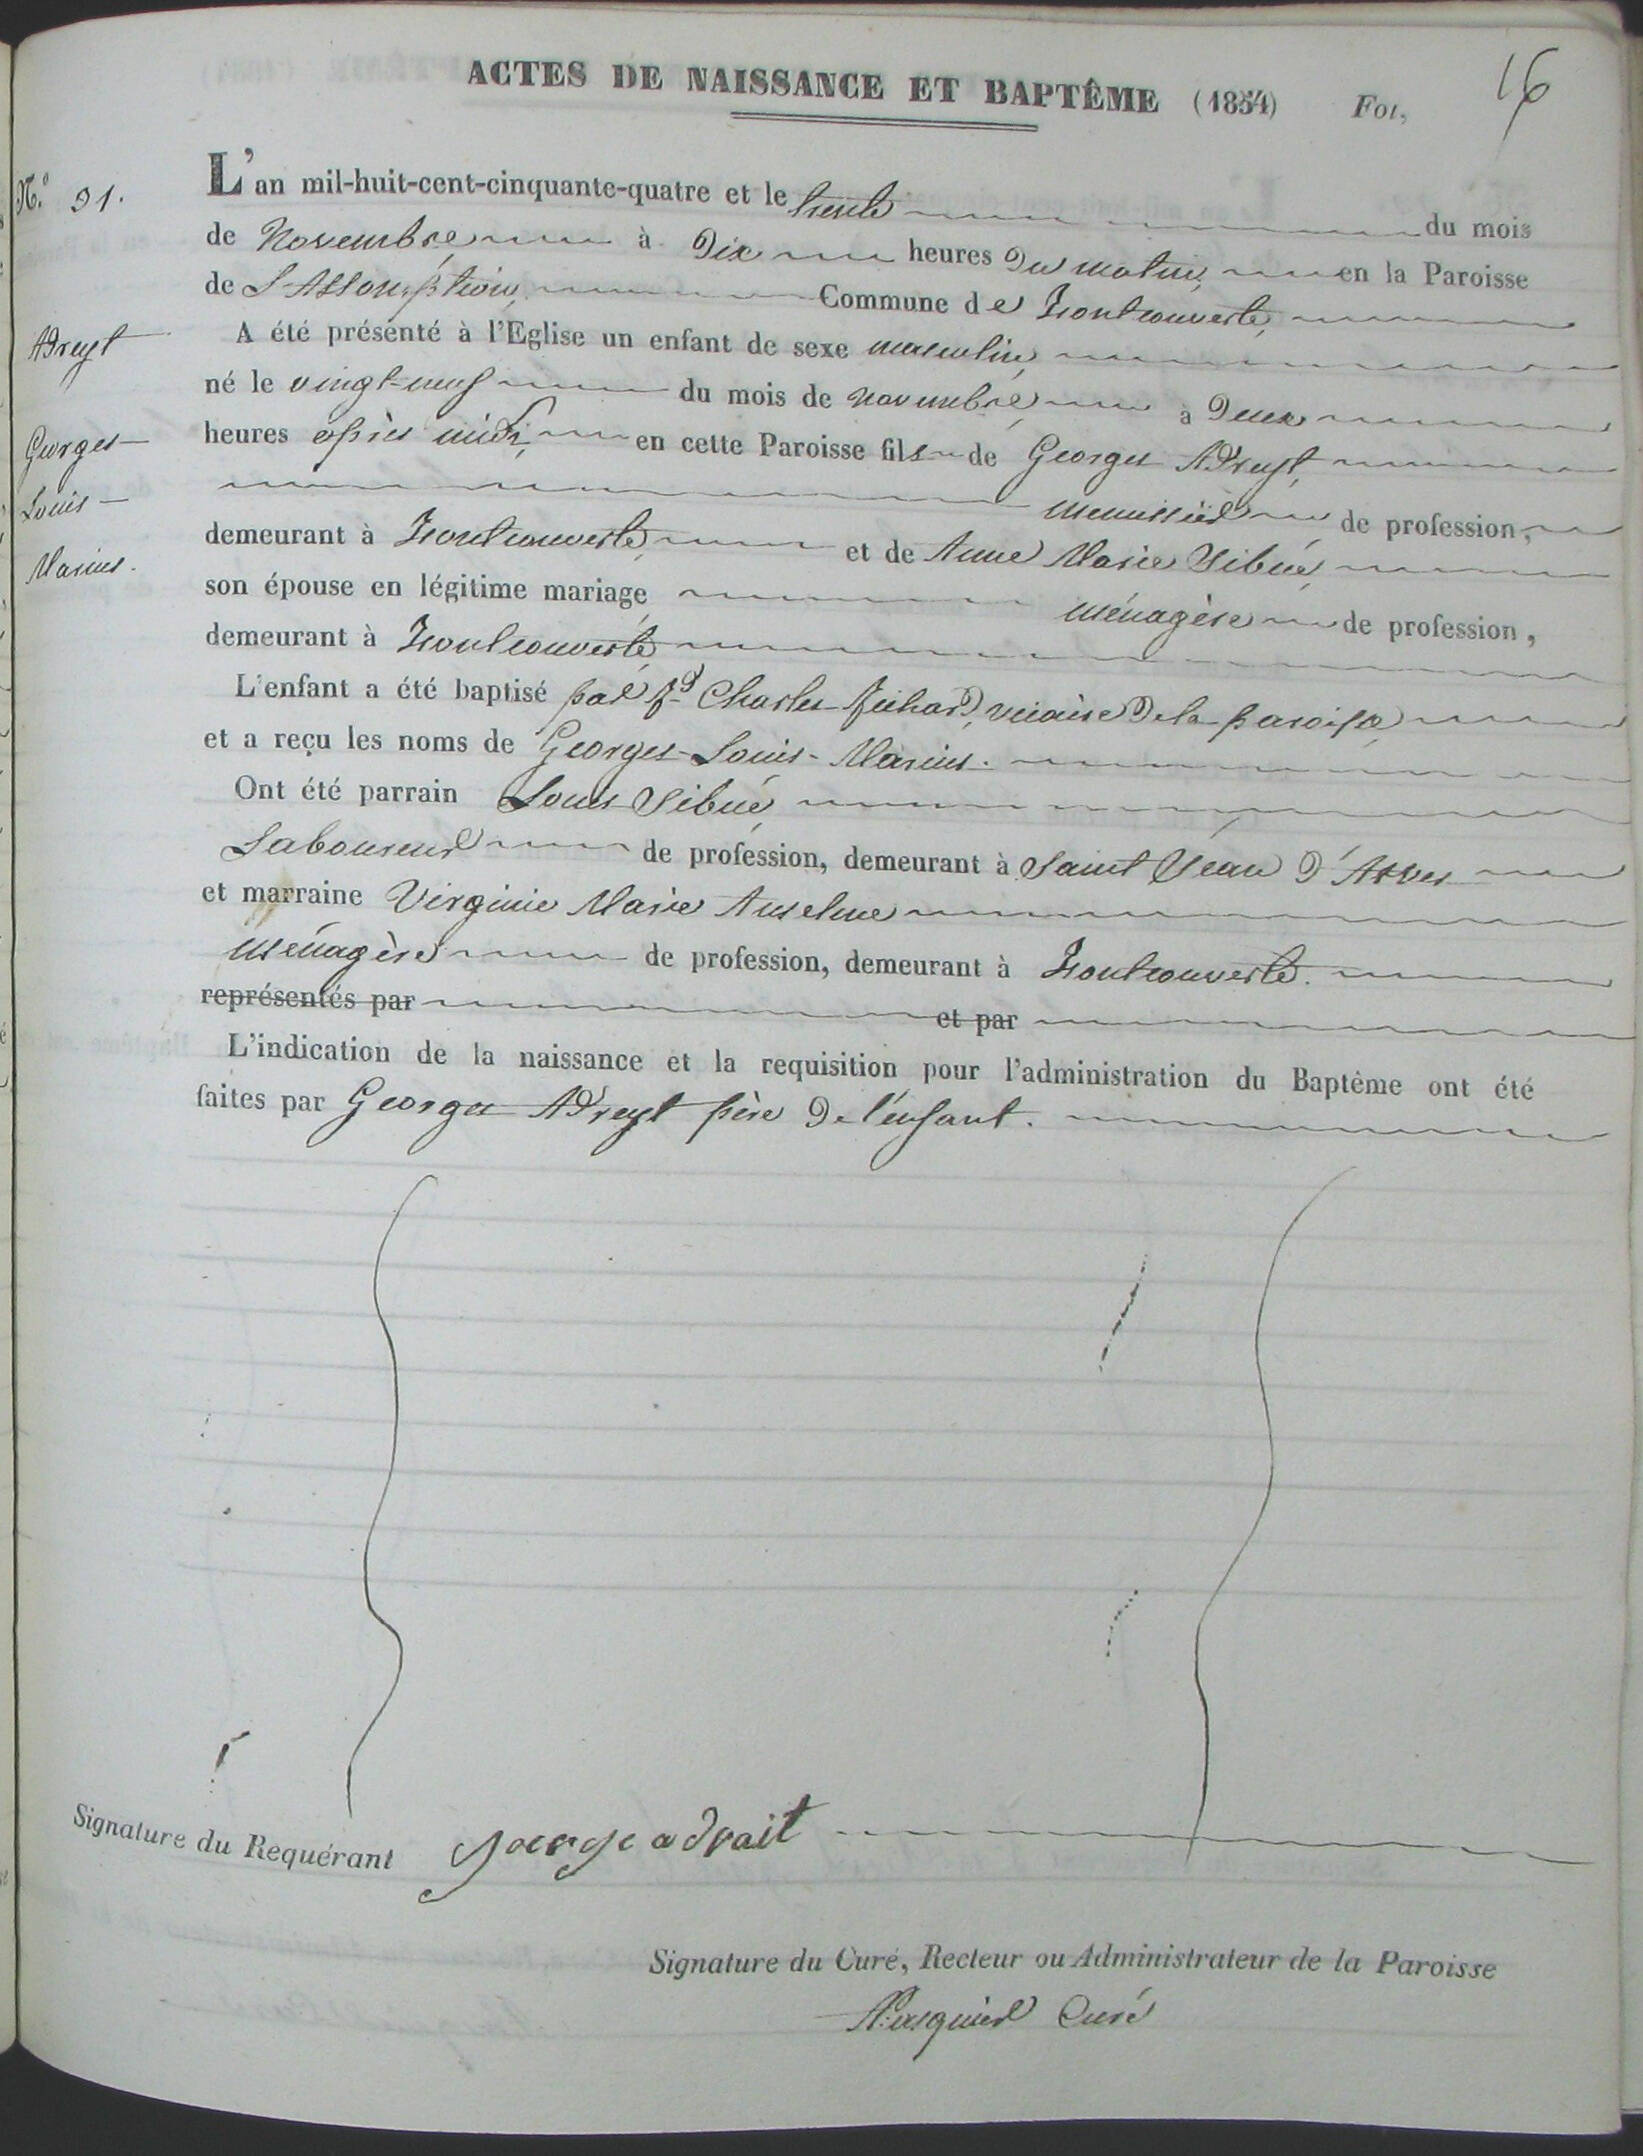 ACTES DE NAISSANCE ET BAPTÊME (1854) Fol, 16
N.° 31.
L'an mil-huit-cent-cinquante-quatre et le trente du mois
de Novembre à Dix heures Du matin, en la Paroisse
de L'Assomption, Commune de Fontcouverte,
A été présenté à l'Eglise un enfant de sexe masculin,
Adreyt
né le vingt-neuf du mois de novembre à Deux
heures après midi, en cette Paroisse fils de Georges Adreyt,
Georges
menuisier de profession,
Louis
demeurant à Fontcouverte, et de Anne Marie Sibué,
Marius.
son épouse en légitime mariage, ménagère de profession,
demeurant à Fontcouverte,
L'enfant a été baptisé par Charles vicaire De la paroisse,
et a reçu les noms de Georges-Louis-Marius.
Ont été parrain Louis Sibué,
Laboureur de profession, demeurant à Saint Jean D'Arves
et marraine Virginie Marie Anselme
ménagère de profession, demeurant à Fontcouverte.
représentés par et par
L'indication de la naissance et la requisition pour l'administration du Baptême ont été
faites par Georges Adreyt père De l'enfant.
Signature du Requérant george adrait
Signature du Curé, Recteur ou Administrateur de la Paroisse
Pasquier Curé